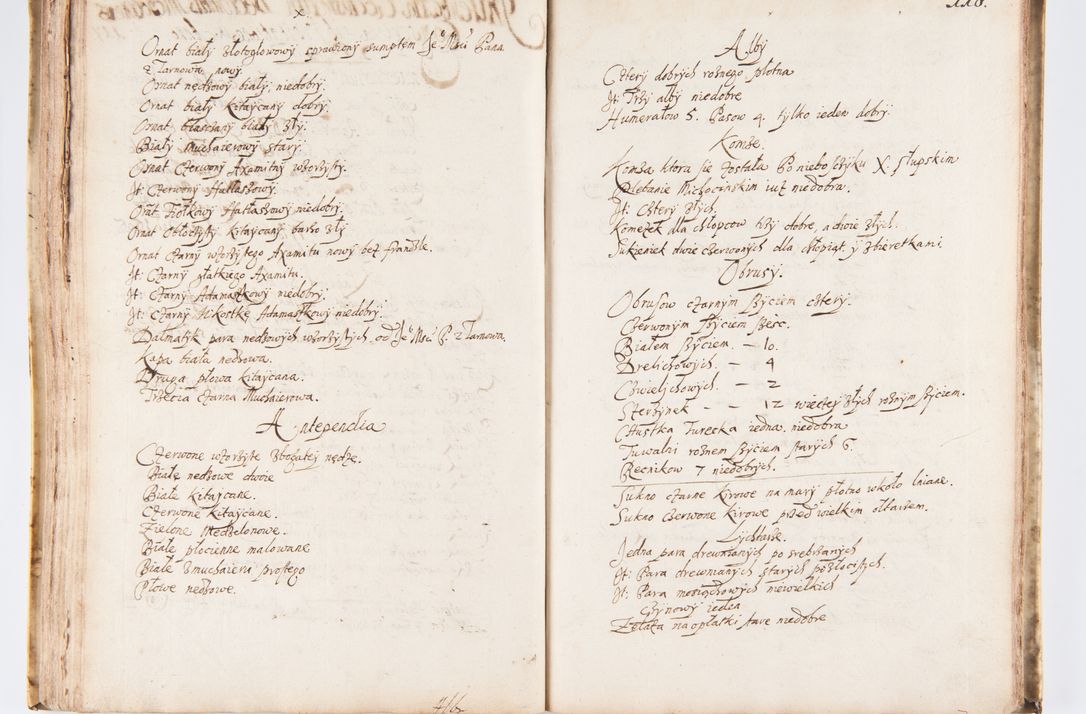 Ornat biały złotogłowowy sprawiony sumptem Je° Mści Pana
z Tarnowa nowy.
Ornat nedzowy biały, niedobry.
Ornat biały Kitaycany dobry.
Ornat biały zły.
Biały Muchaierowy stary.
Ornat Czerwony Axamitny wzorzysty.
It: Czerwony Hatłasowy.
Ornat Fiołkowy Hatłasowy niedobry.
Ornat Obłoczysty Kitaycany barzo zły
Ornat Czarny wzorzystego Axamitu nowy bez frandzle.
It: Czarny gładkiego Axamitu.
It: Czarny Adamaskowy niedobry.
It: Czarny w Kostkę Adamaskowy niedobry.
Dalmatyk para nedzowych wzorzystych od Je° Mści P. z Tarnowa.
Kapa biała nedzowa.
Druga płowa kitaycana.
Trzecia czarna Muchaierowa.
Antependia
Czerwone wzorzyste z bogatey nędze.
Białe nedzowe dwoie
Białe kitaycane.
Czerwone kitaycane.
Zielone Medzelonowe.
Białe płocienne malowane
Białe z muchaieru prostego
Płowe nedzowe.
Alb
118.
Alby
Cztery dobrych roznego płotna
It: Trzy alby niedobre
Humerałow 5. Pasow 4. tylko ieden dobry.
Komże.
Komża ktora sie została Po niebo X. Słupskim
Plebanie Michocinskim iuż niedobra.
It: Cztery złych.
Komeżek dla chłopcow trzy dobre, a dwie złych.
Sukienek dwie czerwonych dla chłopiąt y z bieretkami
Obrusy.
Obrusow czarnym szyciem cztery.
Czerwonym szyciem szesc.
Białem szyciem. — 10.
Drelichowych. — 4
Cwielichowych. — 2
— — 12 złych roznym szyciem.
Chustka Turecka iedna niedobra
Tuwalni roznem szyciem starych 6.
Recnikow 7 niedobrych.
Sukno czarne kirowe na mary płotno wkoło lniane.
Sukno czerwone kirowe przed wielkim ołtarzem.
Lychtarze.
Jedna para drewnianych posrebrzanych
It: Para drewnianych starych pozłocistych.
It: Para mosiądzowych niewielkich
Cynowy ieden
Żelaza na opłatki stare niedobre